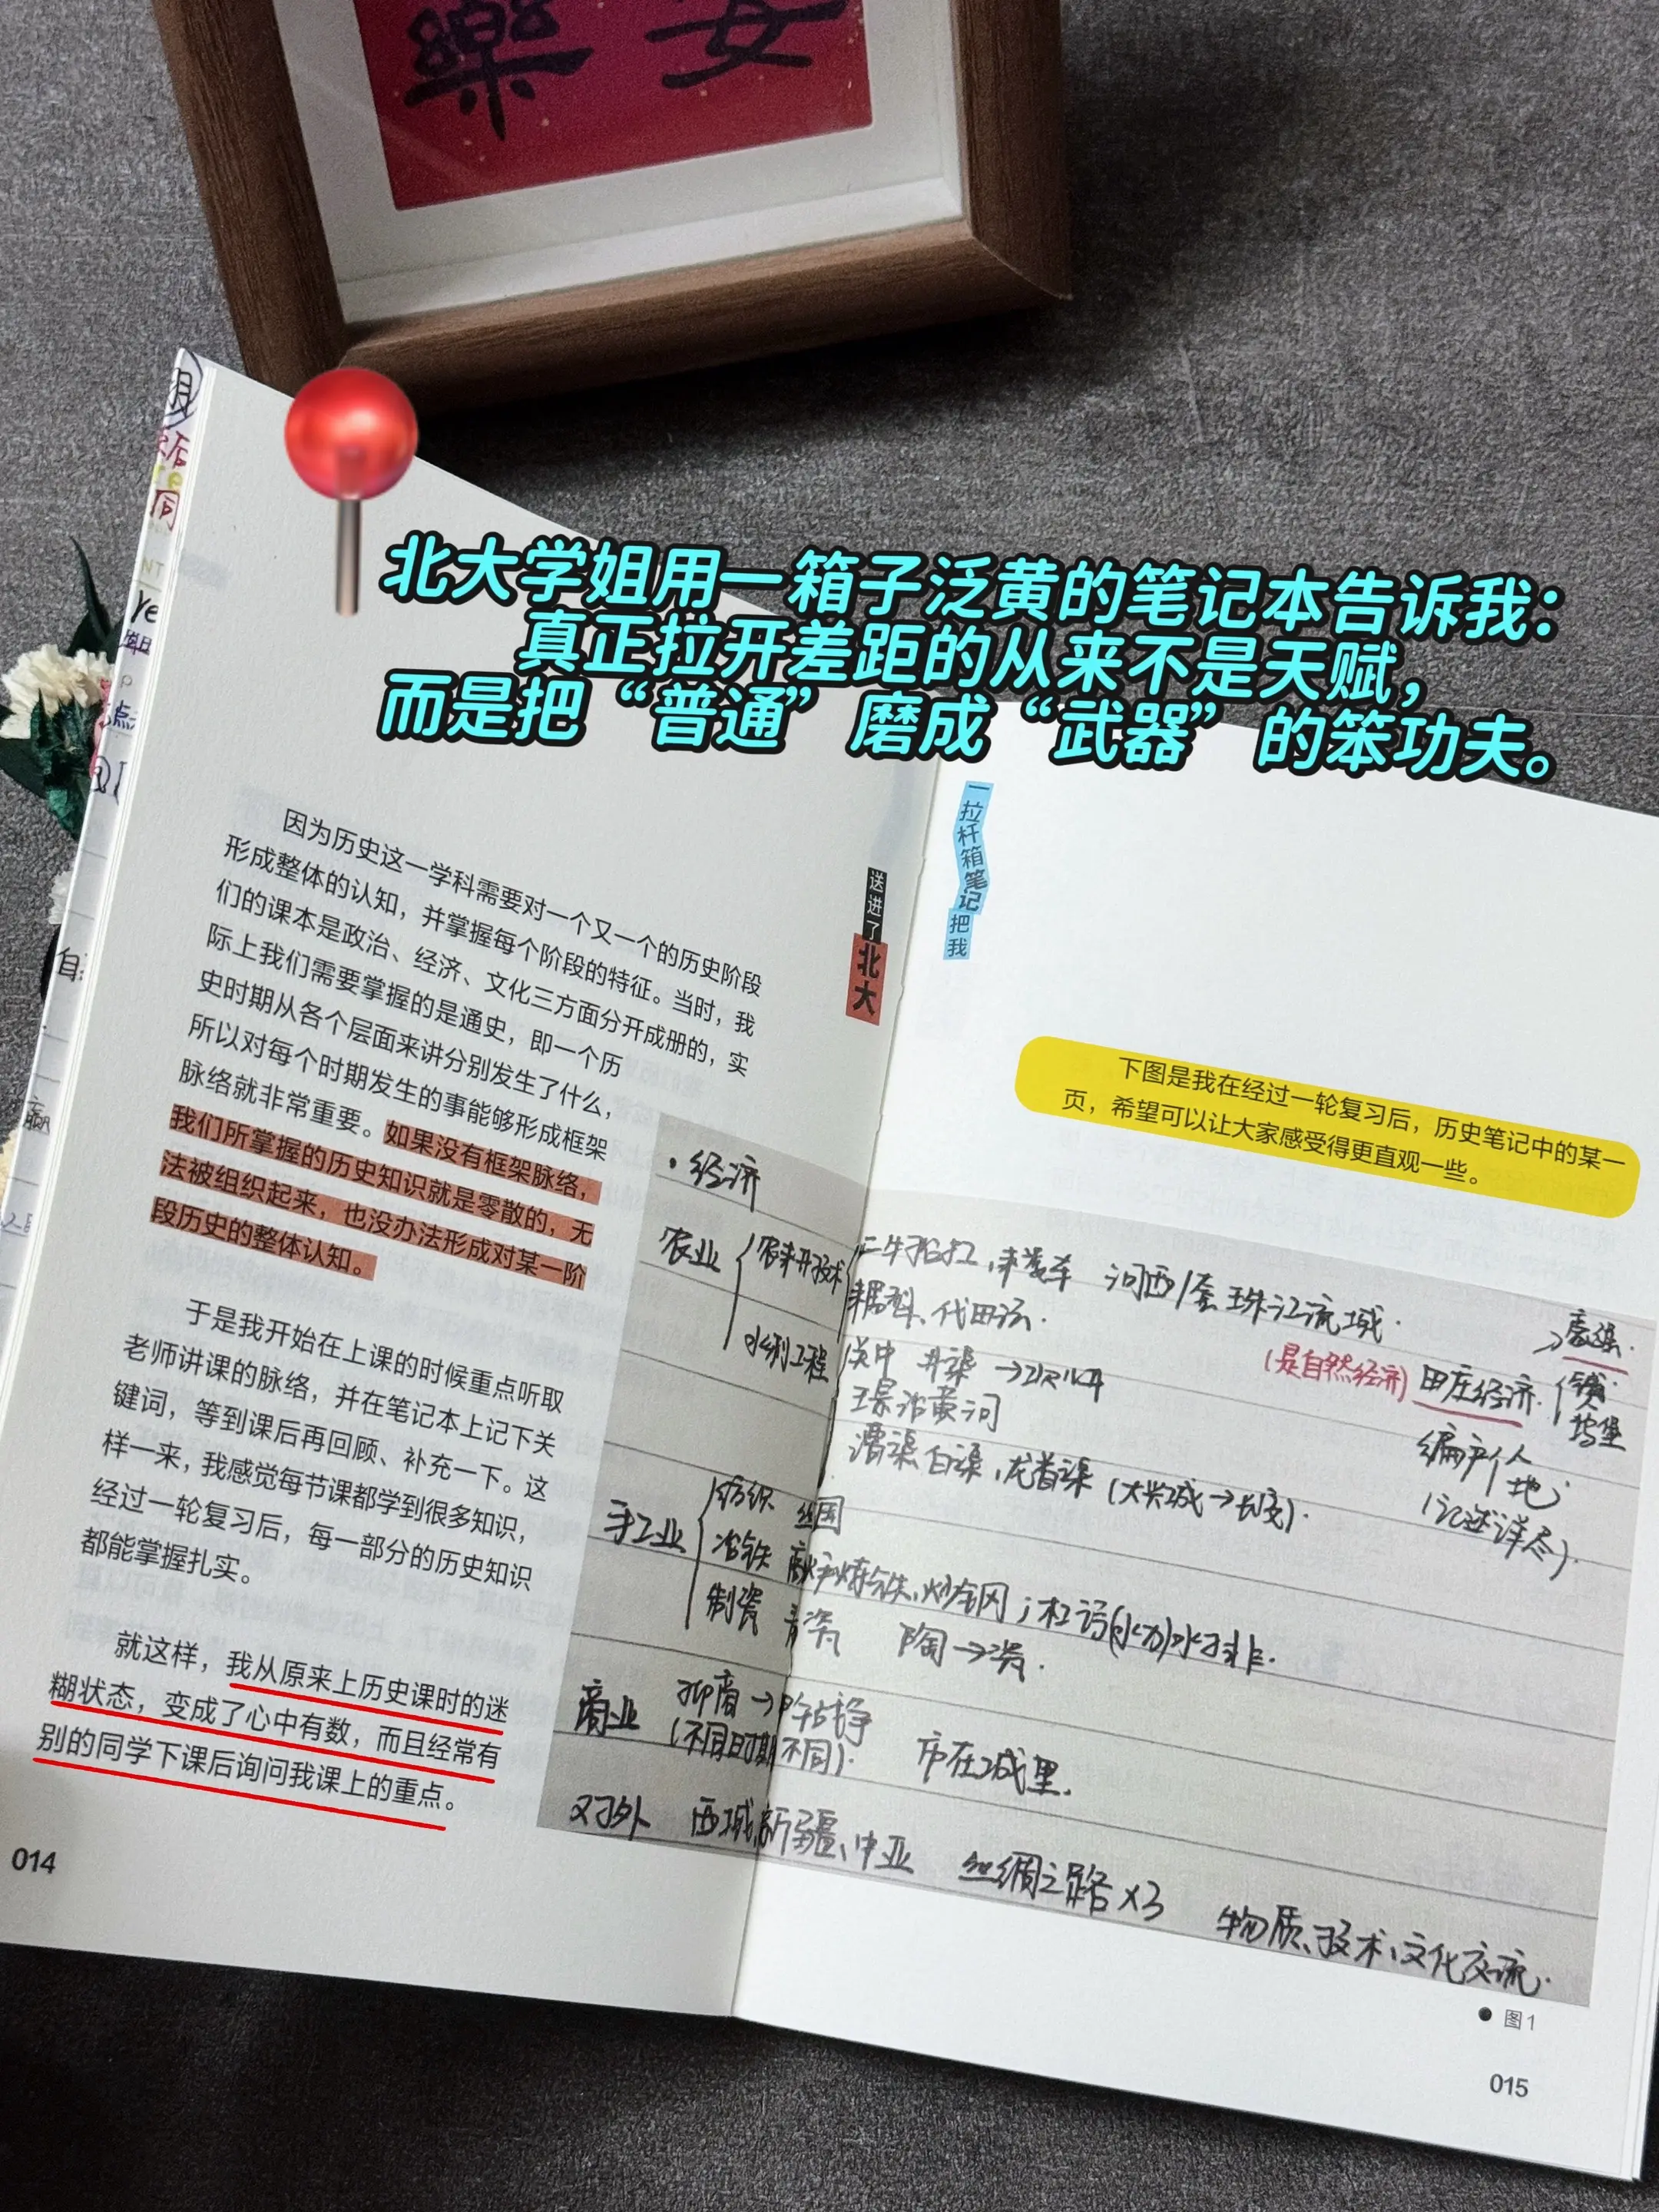 樂 安
北大学姐用一箱子泛黄的笔记本告诉我：
真正拉开差距的从来不是天赋，
而是把“普通”磨成“武器”的笨功夫。
因为历史这一学科需要对一个又一个的历史阶段
形成整体的认知，并掌握每个阶段的特征。当时，我
们的课本是政治、经济、文化三方面分开成册的，实
际上我们需要掌握的是通史，即一个历
史时期从各个层面来讲分别发生了什么，
所以对每个时期发生的事能够形成框架
脉络就非常重要。如果没有框架脉络，
我们所掌握的历史知识就是零散的，无
法被组织起来，也没办法形成对某一阶
段历史的整体认知。
于是我开始在上课的时候重点听取
老师讲课的脉络，并在笔记本上记下关
键词，等到课后再回顾、补充一下。这
样一来，我感觉每节课都学到很多知识，
经过一轮复习后，每一部分的历史知识
都能掌握扎实。
就这样，我从原来上历史课时的迷
糊状态，变成了心中有数，而且经常有
别的同学下课后询问我课上的重点。
014
送进了北大
一拉杆箱笔记把我
下图是我在经过一轮复习后，历史笔记中的某一
页，希望可以让大家感受得更直观一些。
·经济
农业
农耕技术 二牛抬杠，耧车 河西/套 珠江流域·
耦犁、代田法·
水利工程 关中 井渠
王景治黄河
漕渠白渠，龙首渠（大兴城→长安）·
（是自然经济）田庄经济·
坞堡
编户 人
地
（记述详尽）·
手工业
纺织 丝国
冶铁 炒钢；杜诗（水力）水排·
制瓷 青瓷 陶→瓷·
商业 抑商→
（不同时期不同）· 市在城里·
对外 西域，新疆、中亚 丝绸之路×3 物质、技术、文化交流·
图1
015